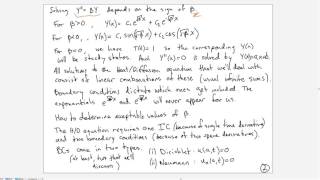 Solving Y" = βY depends on the sign of β.
For β>0, Y(x) = C₁e^{√β x} + C₂e^{-√β x}
For β<0, Y(x) = C₁ sin(√-β x) + C₂ cos(√-β x)
For β=0, we have T(t)=1, so the corresponding Y(x)
will be steady states. And Y"(x)=0 is solved by Y(x)=
All solutions to the Heat/Diffusion equation that we'll deal with
consist of linear combinations of these (usual infinite sums).
Boundary conditions dictate which ones get included. The
exponentials e^{√β x} and e^{-√β x} will never appear for us.
How to determine acceptable values of β.
The H/D equation requires one IC (because of single time derivative)
and two boundary conditions (because of two space derivatives).
BCs come in two types.
(at least, that we'll discuss)
(i) Dirichlet: u(a,t)=0
(ii) Neumann: uₓ(a,t)=0
②